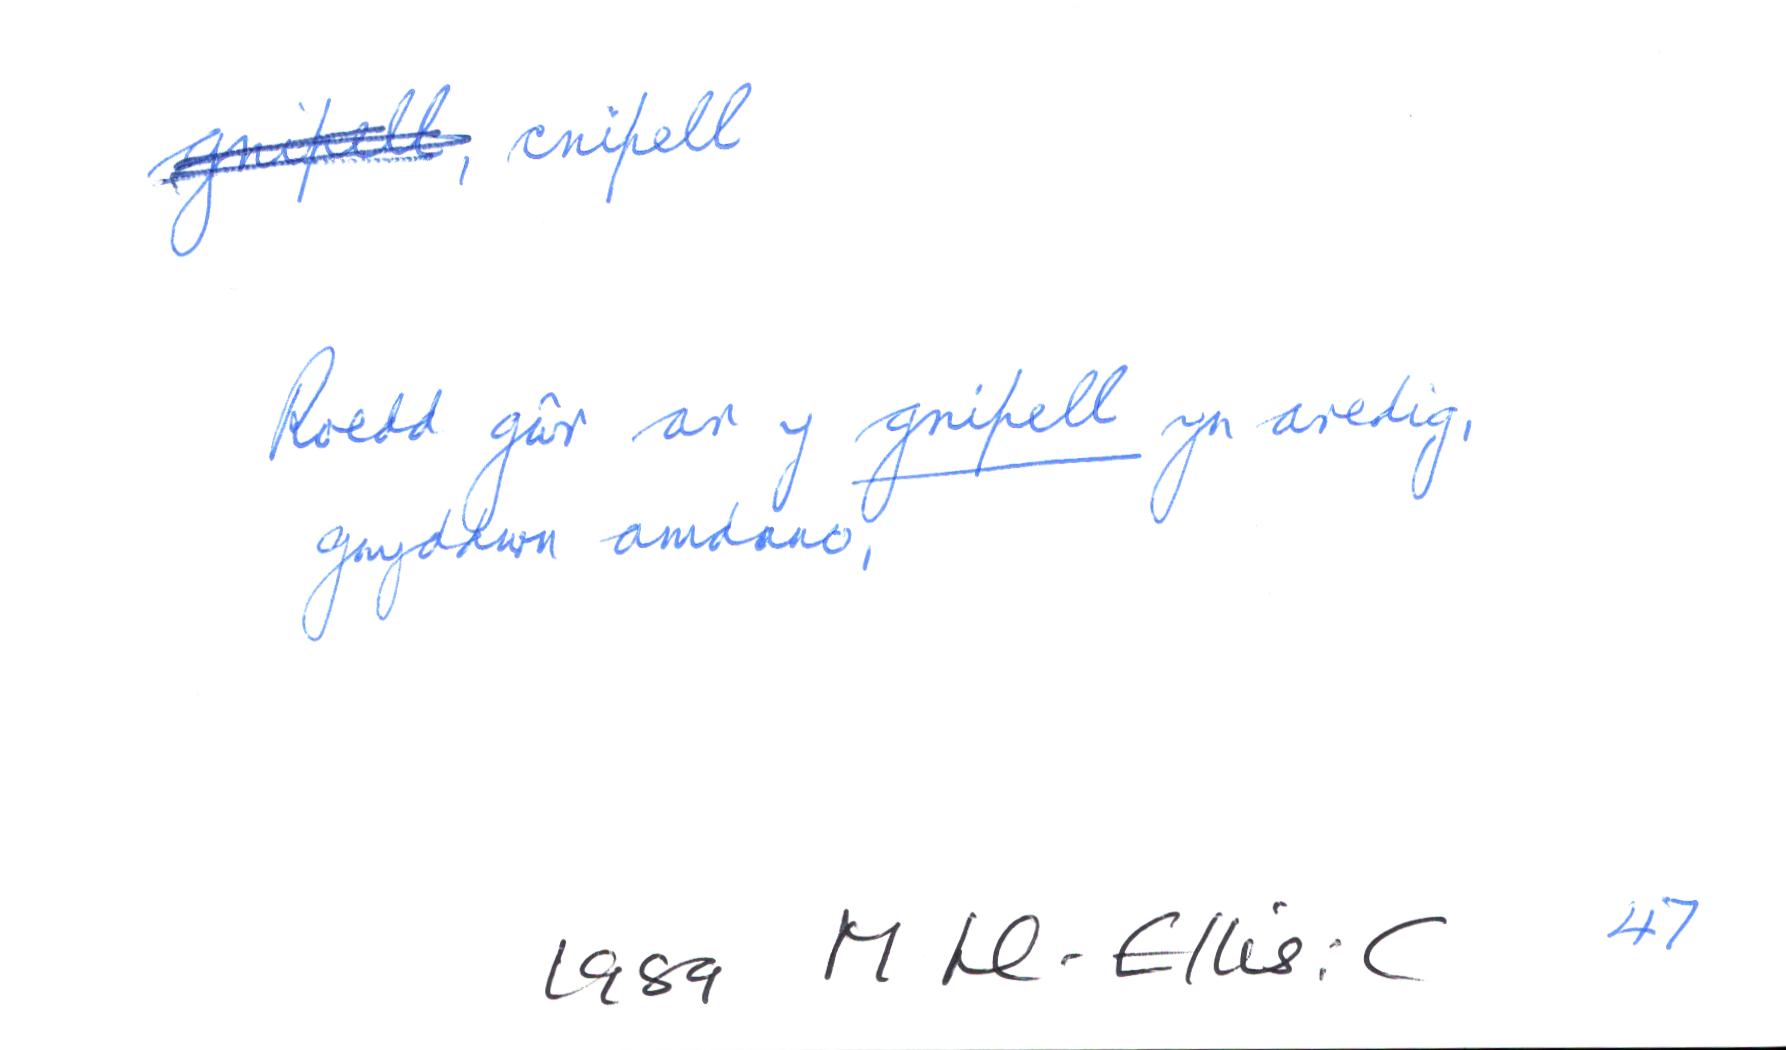 gnipell, cnipell
Roedd gŵr ar y gnipell yn aredig,
gwyddwn amdano,
1989 M Ll-Ellis: C 47